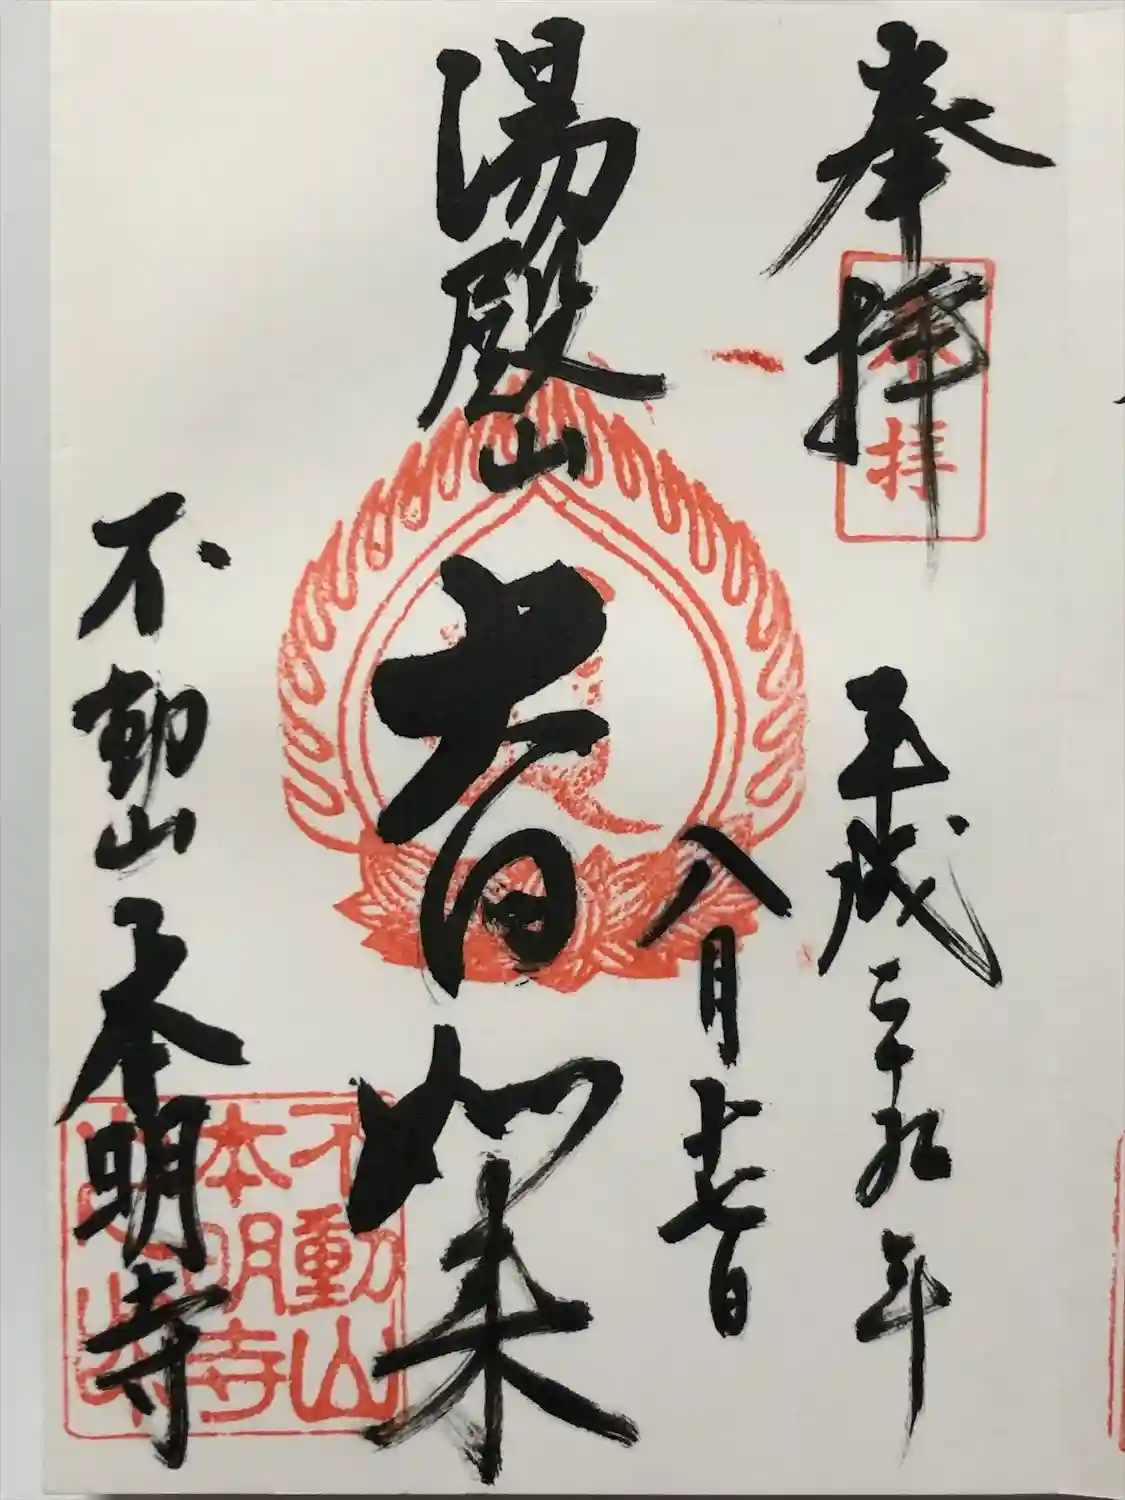 奉拝
平成二十九年
八月十七日
湯殿山
大日如来
不動山
本明寺
拝
不動山
本明寺